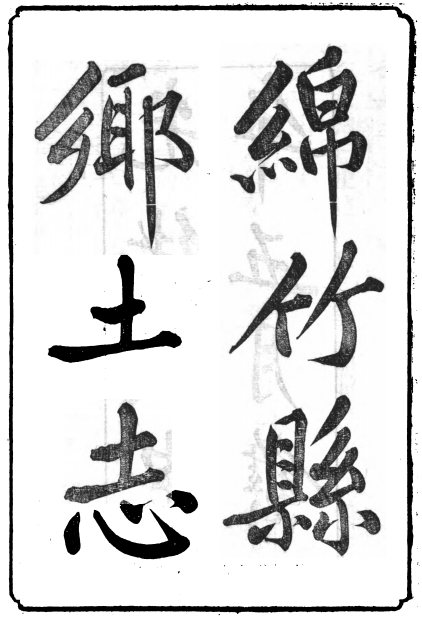 綿竹縣
鄉土志